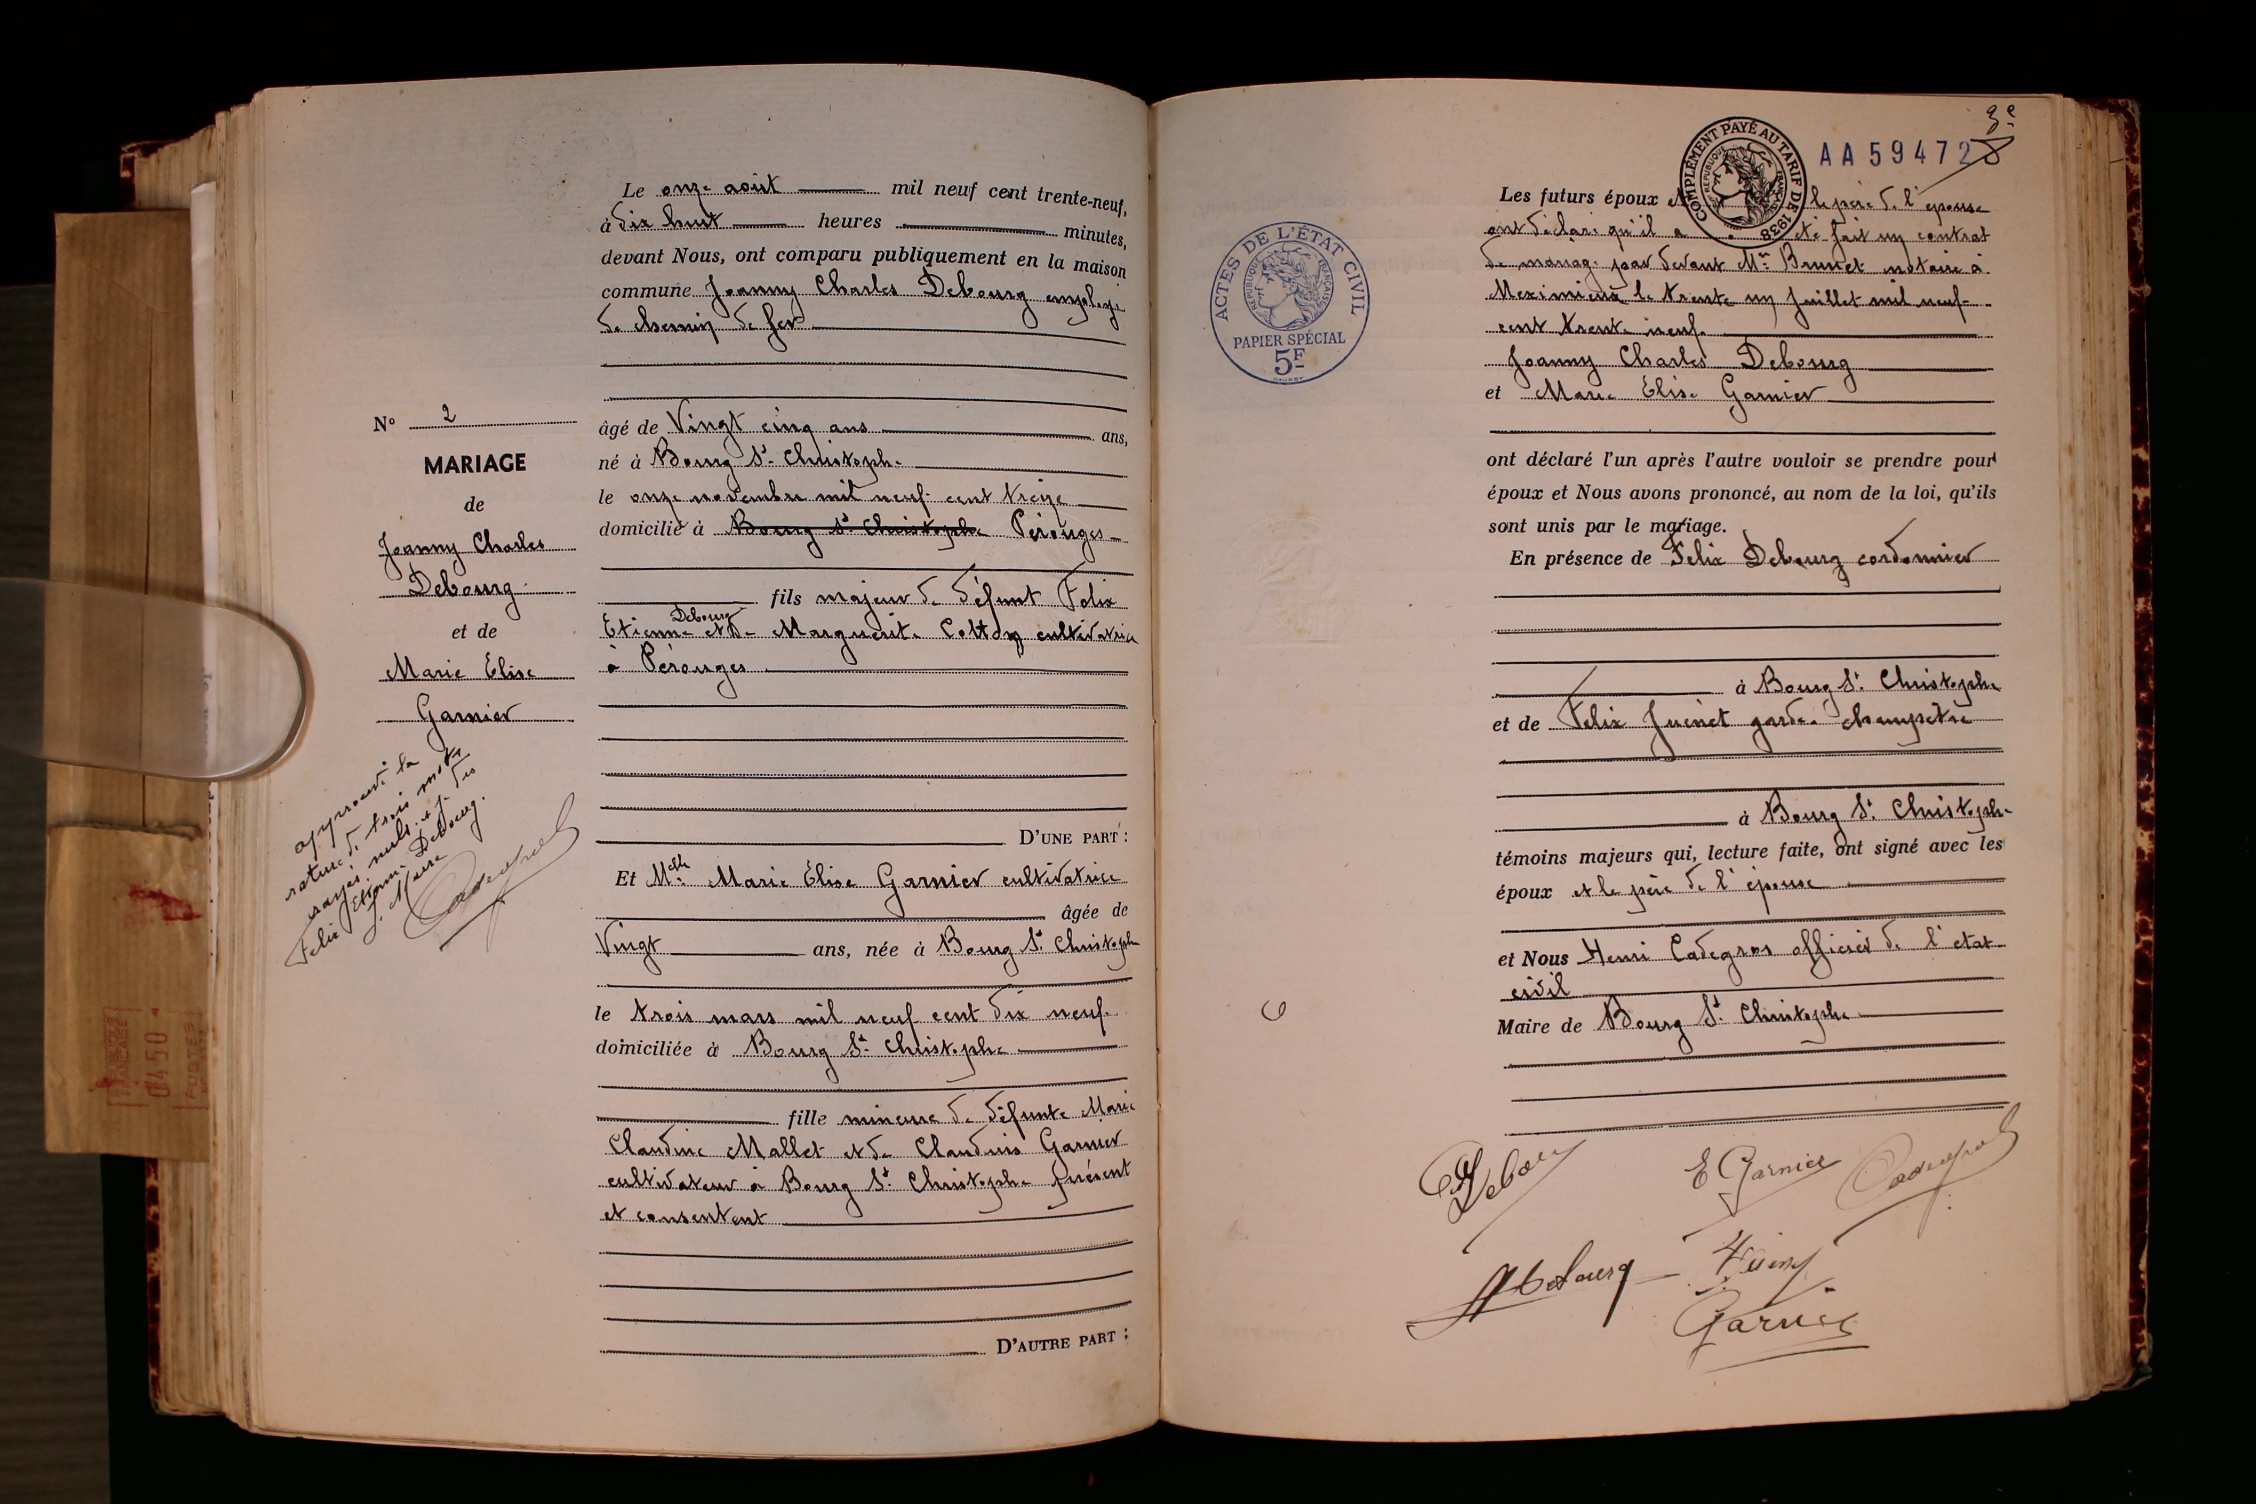 Le onze août mil neuf cent trente-neuf,
à dix huit heures minutes,
devant Nous, ont comparu publiquement en la maison
commune Joanny Charles Debourg employé
de chemin de fer
N° 2
MARIAGE
de
Joanny Charles
Debourg
et de
Marie Elise
Garnier
approuvé la
rature de trois mots
rayés nuls et
Felix Etienne Debourg.
Le Maire
âgé de Vingt cinq ans ans,
né à Bourg St Christophe
le onze novembre mil neuf cent treize
domicilié à Bourg St Christophe Pérouges
fils majeur de défunt Felix
Debourg
Etienne et de Marguerite Cottoy cultivatrice
à Pérouges
D'UNE PART :
Et Melle Marie Elise Garnier cultivatrice
âgée de
Vingt ans, née à Bourg St Christophe
le trois mars mil neuf cent dix neuf
domiciliée à Bourg St Christophe
fille mineure de défunte Marie
Claudine Mallet et de Claudius Garnier
cultivateur à Bourg St Christophe présent
et consentent
D'AUTRE PART :
ACTES DE L'ÉTAT CIVIL
RÉPUBLIQUE FRANÇAISE
PAPIER SPÉCIAL
5F
COMPLÉMENT PAYÉ AU TARIF DE 1938
RÉPUBLIQUE FRANÇAISE
AA 59472
Les futurs époux le père de l'épouse
ont déclaré qu'il a été fait un contrat
de mariage par devant Me Brunet notaire à
Meximieux le trente un Juillet mil neuf
cent trente neuf.
Joanny Charles Debourg
et Marie Elise Garnier
ont déclaré l'un après l'autre vouloir se prendre pour
époux et Nous avons prononcé, au nom de la loi, qu'ils
sont unis par le mariage.
En présence de Felix Debourg cordonnier
à Bourg St Christophe
et de Felix Juenet garde champêtre
à Bourg St Christophe
témoins majeurs qui, lecture faite, ont signé avec les
époux et le père de l'épouse
et Nous Henri Cadegros officier de l'etat
civil
Maire de Bourg St Christophe
Debourg
E Garnier
Cadegros
Debourg
Garnier